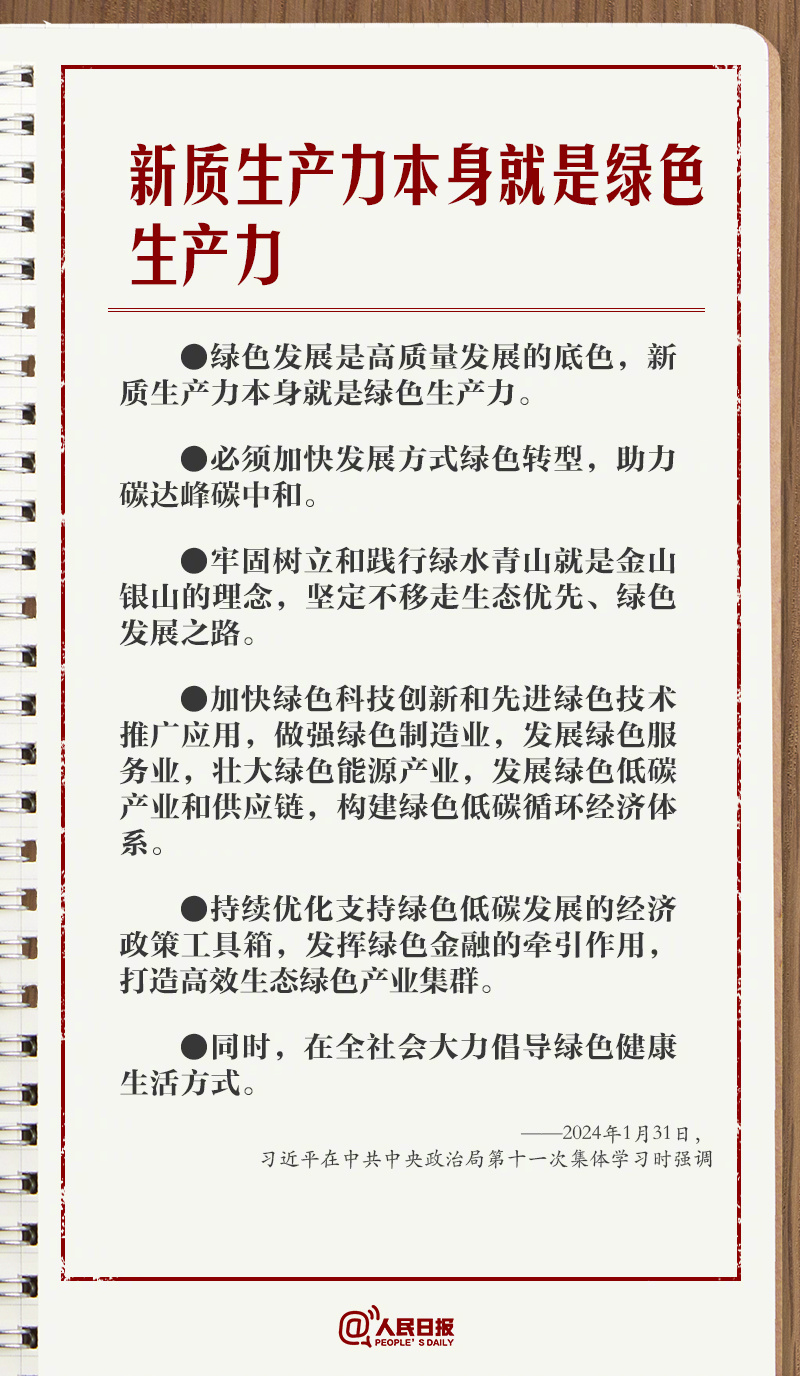 新质生产力本身就是绿色
生产力
●绿色发展是高质量发展的底色，新
质生产力本身就是绿色生产力。
●必须加快发展方式绿色转型，助力
碳达峰碳中和。
●牢固树立和践行绿水青山就是金山
银山的理念，坚定不移走生态优先、绿色
发展之路。
●加快绿色科技创新和先进绿色技术
推广应用，做强绿色制造业，发展绿色服
务业，壮大绿色能源产业，发展绿色低碳
产业和供应链，构建绿色低碳循环经济体
系。
●持续优化支持绿色低碳发展的经济
政策工具箱，发挥绿色金融的牵引作用，
打造高效生态绿色产业集群。
●同时，在全社会大力倡导绿色健康
生活方式。
——2024年1月31日，
习近平在中共中央政治局第十一次集体学习时强调
@人民日报
PEOPLE'S DAILY